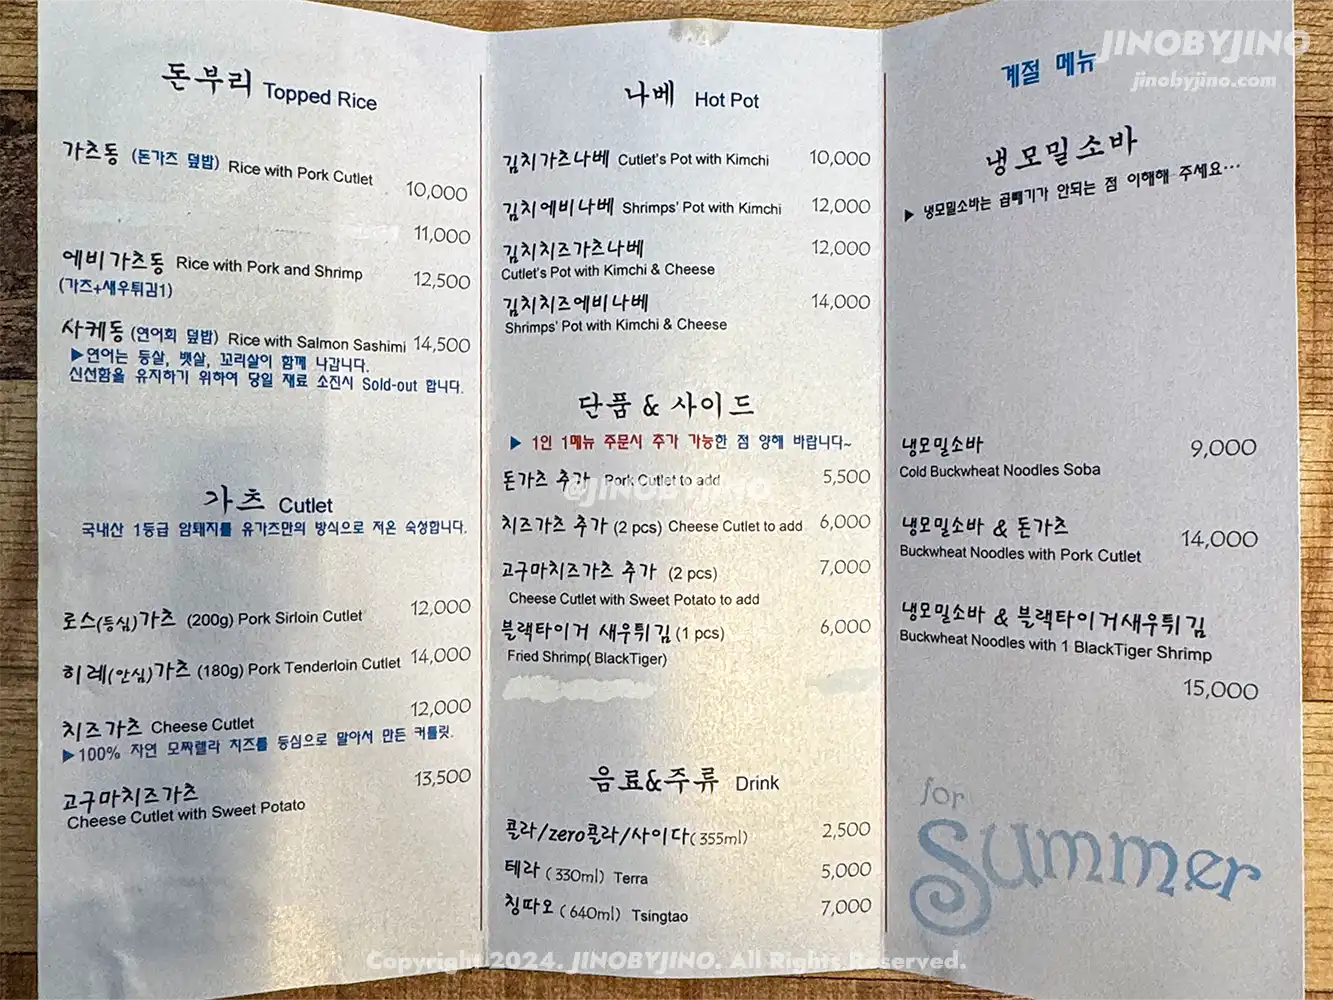 돈부리 Topped Rice
가츠동 (돈가츠 덮밥) Rice with Pork Cutlet 10,000
11,000
에비가츠동 Rice with Pork and Shrimp 12,500
(가츠+새우튀김1)
사케동 (연어회 덮밥) Rice with Salmon Sashimi 14,500
▶연어는 등살, 뱃살, 꼬리살이 함께 나갑니다.
신선함을 유지하기 위하여 당일 재료 소진시 Sold-out 합니다.
가츠 Cutlet
국내산 1등급 암돼지를 유가츠만의 방식으로 저온 숙성합니다.
로스(등심)가츠 (200g) Pork Sirloin Cutlet 12,000
히레(안심)가츠 (180g) Pork Tenderloin Cutlet 14,000
치즈가츠 Cheese Cutlet 12,000
▶100% 자연 모짜렐라 치즈를 등심으로 말아서 만든 커틀릿.
고구마치즈가츠 13,500
Cheese Cutlet with Sweet Potato
나베 Hot Pot
김치가츠나베 Cutlet's Pot with Kimchi 10,000
김치에비나베 Shrimps' Pot with Kimchi 12,000
김치치즈가츠나베 12,000
Cutlet's Pot with Kimchi & Cheese
김치치즈에비나베 14,000
Shrimps' Pot with Kimchi & Cheese
단품 & 사이드
▶ 1인 1메뉴 주문시 추가 가능한 점 양해 바랍니다~
돈가츠 추가 Pork Cutlet to add 5,500
@JINOBYJINO
치즈가츠 추가 (2 pcs) Cheese Cutlet to add 6,000
고구마치즈가츠 추가 (2 pcs) 7,000
Cheese Cutlet with Sweet Potato to add
블랙타이거 새우튀김 (1 pcs) 6,000
Fried Shrimp( BlackTiger)
음료&주류 Drink
콜라/zero콜라/사이다(355ml) 2,500
테라 (330ml) Terra 5,000
칭따오 (640ml) Tsingtao 7,000
JINOBYJINO
jinobyjino.com
계절 메뉴
냉모밀소바
▶ 냉모밀소바는 곱빼기가 안되는 점 이해해 주세요...
냉모밀소바 9,000
Cold Buckwheat Noodles Soba
냉모밀소바 & 돈가츠 14,000
Buckwheat Noodles with Pork Cutlet
냉모밀소바 & 블랙타이거새우튀김
Buckwheat Noodles with 1 BlackTiger Shrimp
15,000
for
Summer
Copyright 2024. JINOBYJINO. All Rights Reserved.